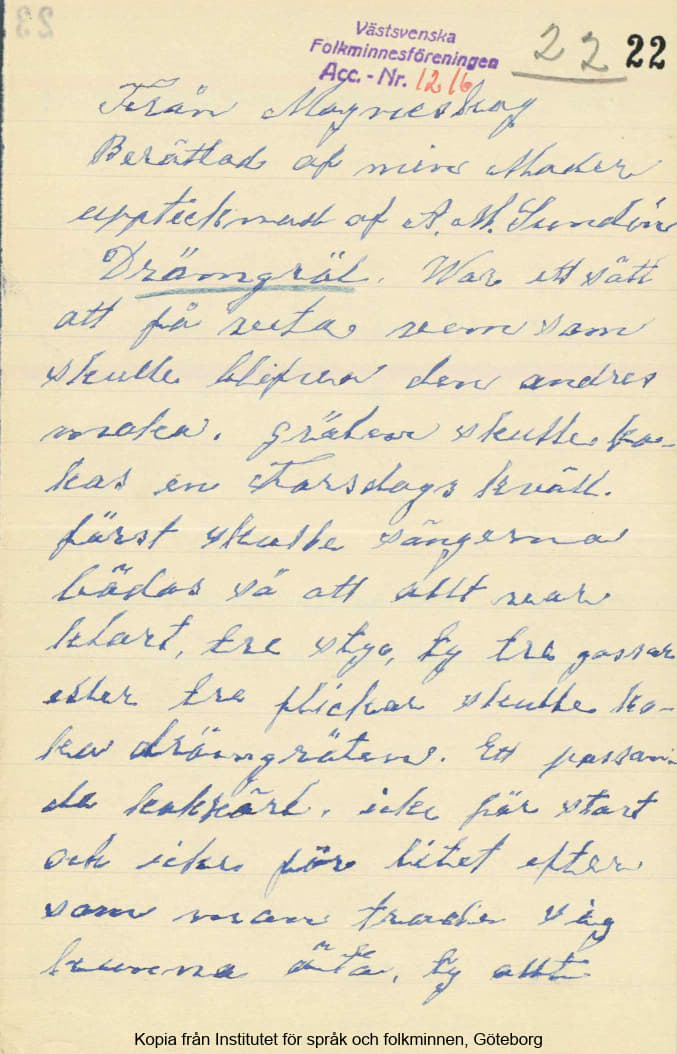 Västsvenska
Folkminnesföreningen
Acc. - Nr. 1216
22 22
Från Magneskog
Berättad af min Moder
upptecknad af A. M. Sundin
Drömgröt. War ett sätt
att få veta vem som
skulle blifva den andres
maka. gröten skulle ko-
kas en Torsdags kväll.
först skulle sängarna
bädas så att allt var
klart, tre styc, ty tre gossar
eller tre flickor skulle ko-
ka drömgröten. Ett passan-
de kokkärl. icke för stort
och icke för litet efter
som man trodde sig
kunna äta, ty allt
Kopia från Institutet för språk och folkminnen, Göteborg